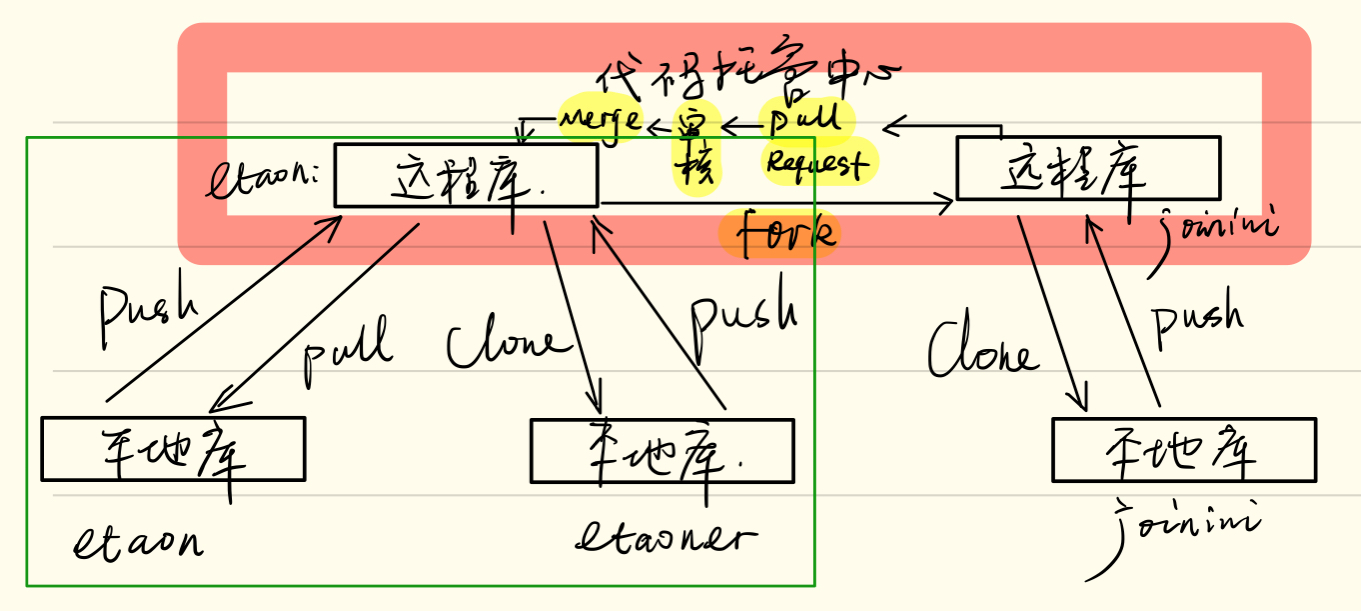 代码托管中心
Merge 审核 pull Request
etaon: 远程库.
远程库
joinini
fork
push
pull
Clone
push
Clone
push
本地库
本地库.
本地库
etaon
etaoner
joinini